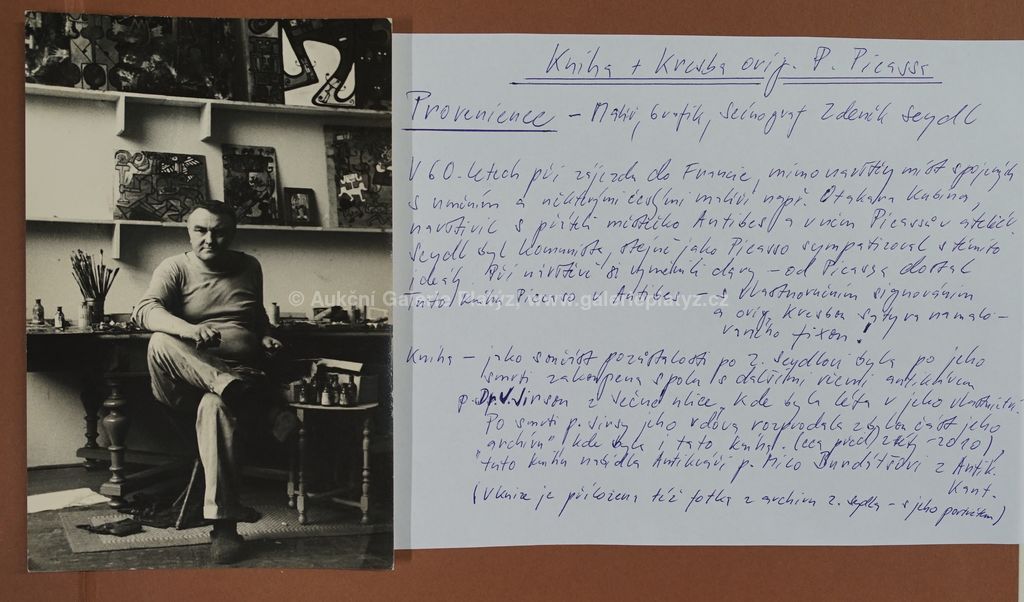 Kniha + Kresba orig. P. Picassa
Provenience – Malíř, Grafik, Scénograf Zdeněk Seydl
V 60. letech při zájezdu do Francie, mimo návštěv míst spojených
s uměním a některými českými malíři např. Otakara Kubína,
navštívil s přáteli městečko Antibes a v něm Picassův ateliér.
Seydl byl komunista, stejně jako Picasso sympatizoval s těmito
ideály. Při návštěvě si vyměnili dary – od Picassa dostal
tuto knihu Picasso v Antibes – s vlastnoručním signováním
a orig. kresbou satyra namalo-
vaného fixou!
© Aukční Galerie Platýz / www.galerieplatyz.cz
Kniha – jako součást pozůstalosti po Z. Seydlovi byla po jeho
smrti zakoupena spolu s dalšími věcmi antikvářem
p. Dr. V. Jirsou z Ječné ulice, kde byla léta v jeho vlastnictví.
Po smrti p. Jirsy jeho vdova rozprodala zbylou část jeho
"archivu" kde byla i tato kniha. (cca před 2 roky - 2010)
tuto knihu nabídla Antikváři p. z Antik.
Kant.
(V knize je přiložena též fotka z archivu Z. Seydla – s jeho portrétem)